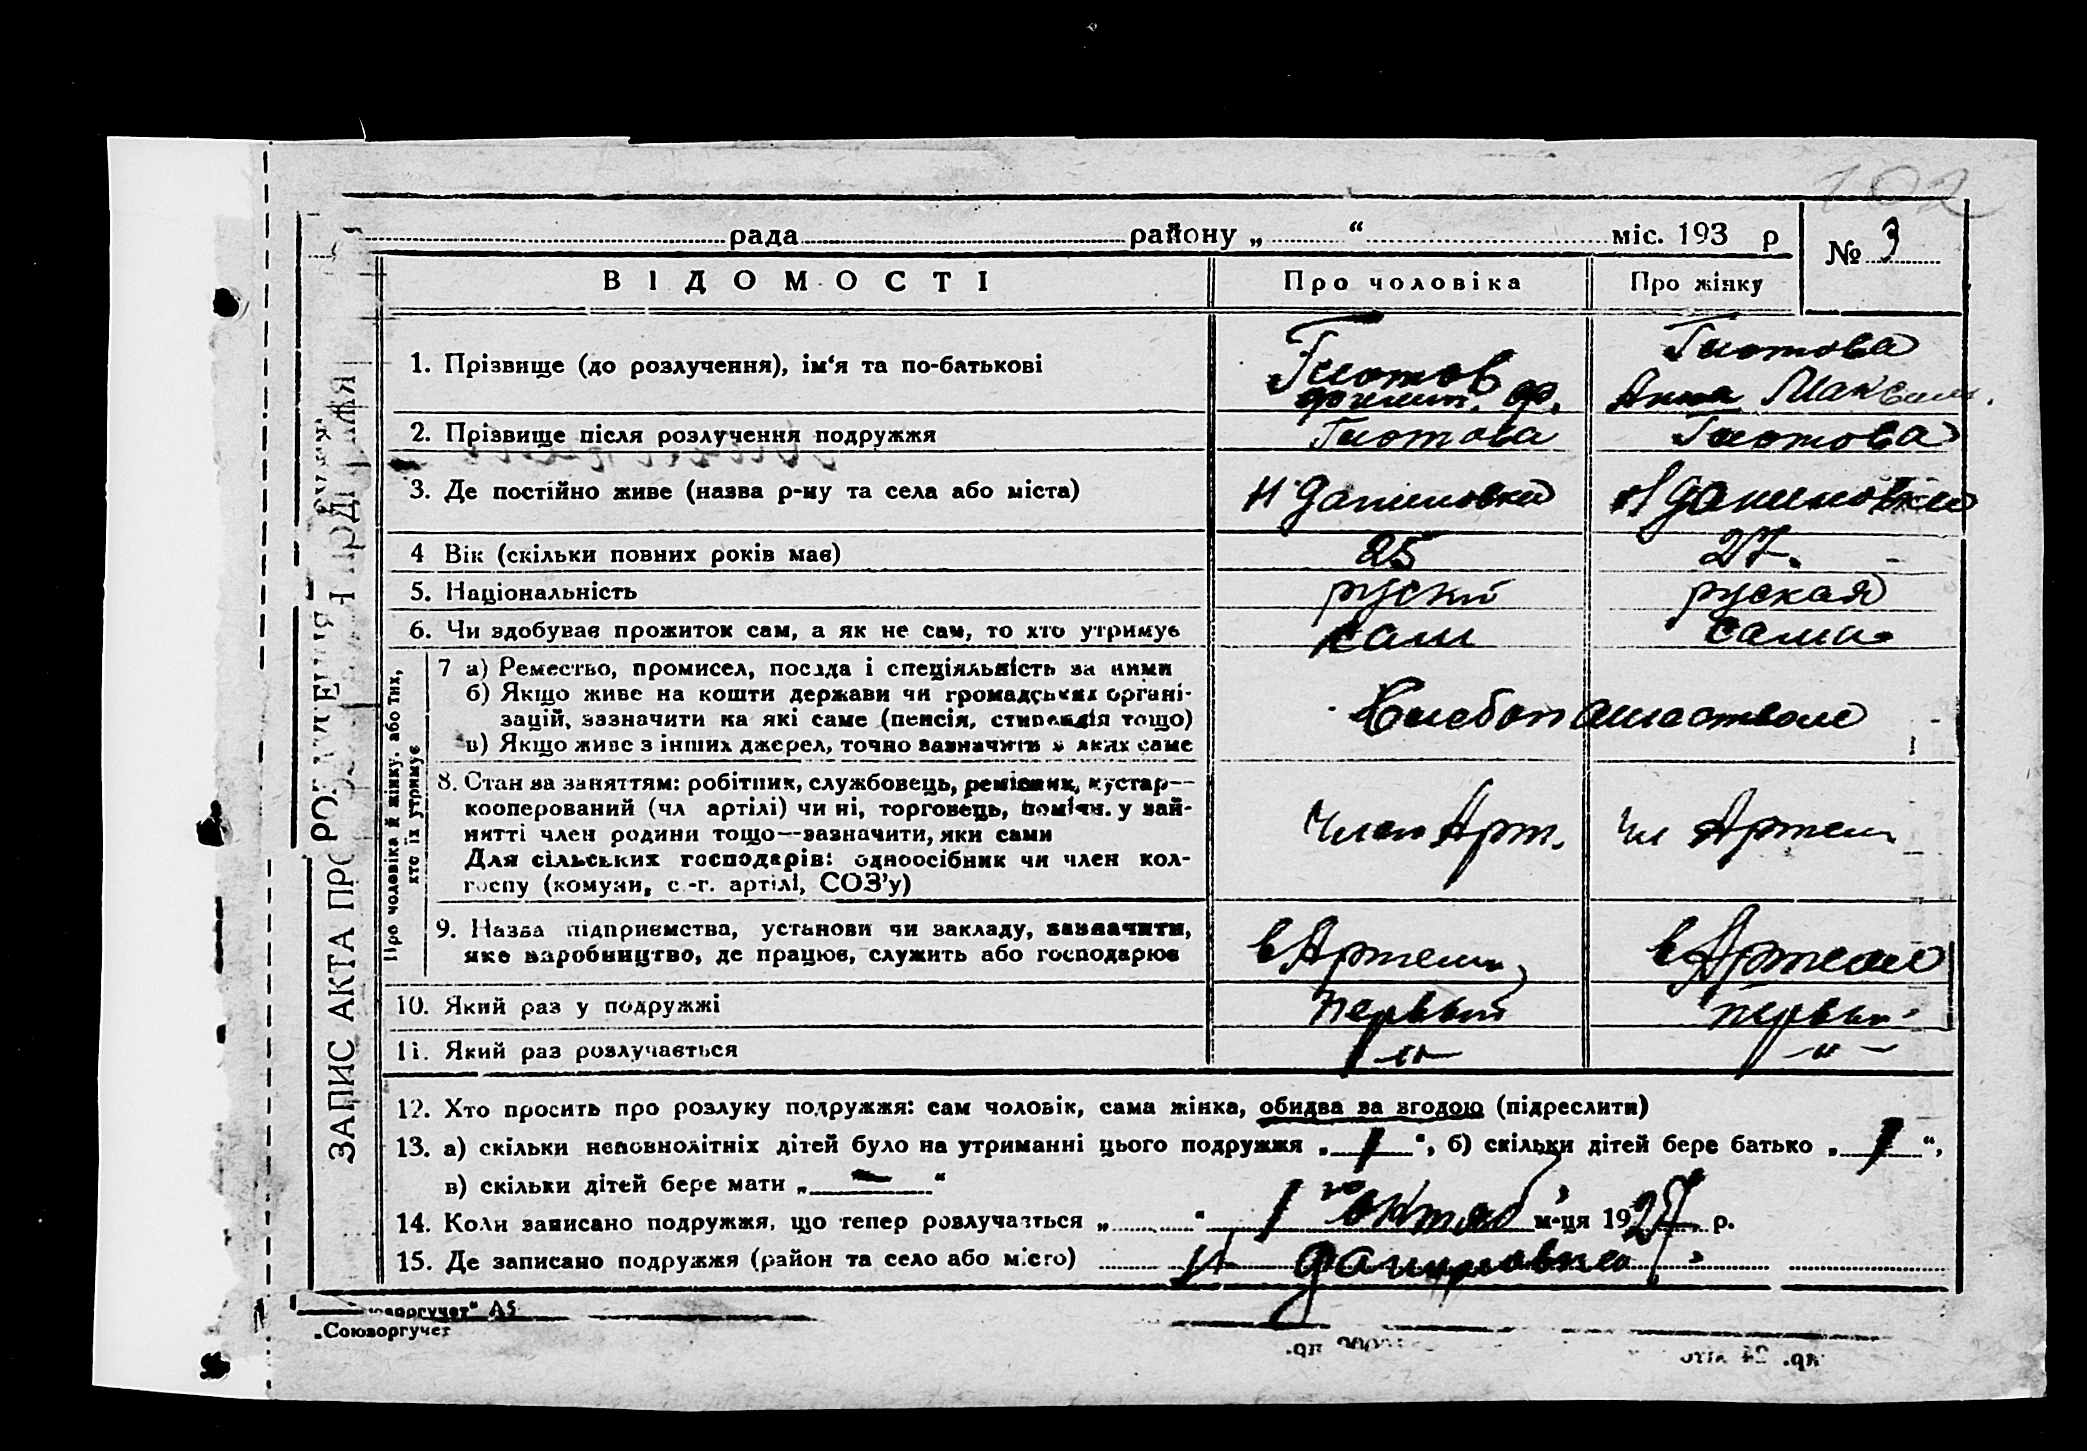 102
рада районну „ “ міс. 193 р
№ 3
ВІДОМОСТІ Про чоловіка Про жінку
1. Прізвище (до розлучення), ім‘я та по-батькові
Глотов
Глотова
Анна Максим.
2. Прізвище після розлучення подружжя Глотова Глотова
3. Де постійно живе (назва р-ну та села або міста) Н Даниловка Н Даниловка
4 Вік (скільки повних років має) 25 27.
5. Національність руский руская
6. Чи здобував прожиток сам, а як не сам, то хто утримує сам сама
Про чоловіка й жінку. або тих,
хто їх утримує
7 а) Ремество, промисел, посада і спеціяльність за ними
б) Якщо живе на кошти держави чи громадських органі-
зацій, зазначити на які саме (пенсія, стипендія тощо)
в) Якщо живе з інших джерел, точно зазначити з яких саме
Хлебопашеством
8. Стан за заняттям: робітник, службовець, ремісник, кустар—
кооперований (чл артілі) чи ні, торговець, поміч. у зай-
нятті член родини тощо—зазначити, яки сами
Для сільських господарів: одноосібник чи член кол-
госпу (комуни, с.-г. артілі, СОЗ’у)
Член Арт. Чл Артели
9. Назва підприємства, установи чи закладу, зазначити,
яке виробництво, де працює, служить або господарює
в Артели в Артели
10. Який раз у подружжі первый первый
11. Який раз розлучається -„- -„-
12. Хто просить про розлуку подружжя: сам чоловік, сама жінка, обидва за згодою (підреслити)
13. а) скільки неповнолітніх дітей було на утриманні цього подружжя „ 1 “, б) скільки дітей бере батько „ 1 “,
в) скільки дітей бере мати „ — “
14. Коли записано подружжя, що тепер розлучається „ “ 1 го октяб м-ця 1927 р.
15. Де записано подружжя (район та село або місто) Н Даниловка
ЗАПИС АКТА ПРО
“ А5
„Союзоргучет